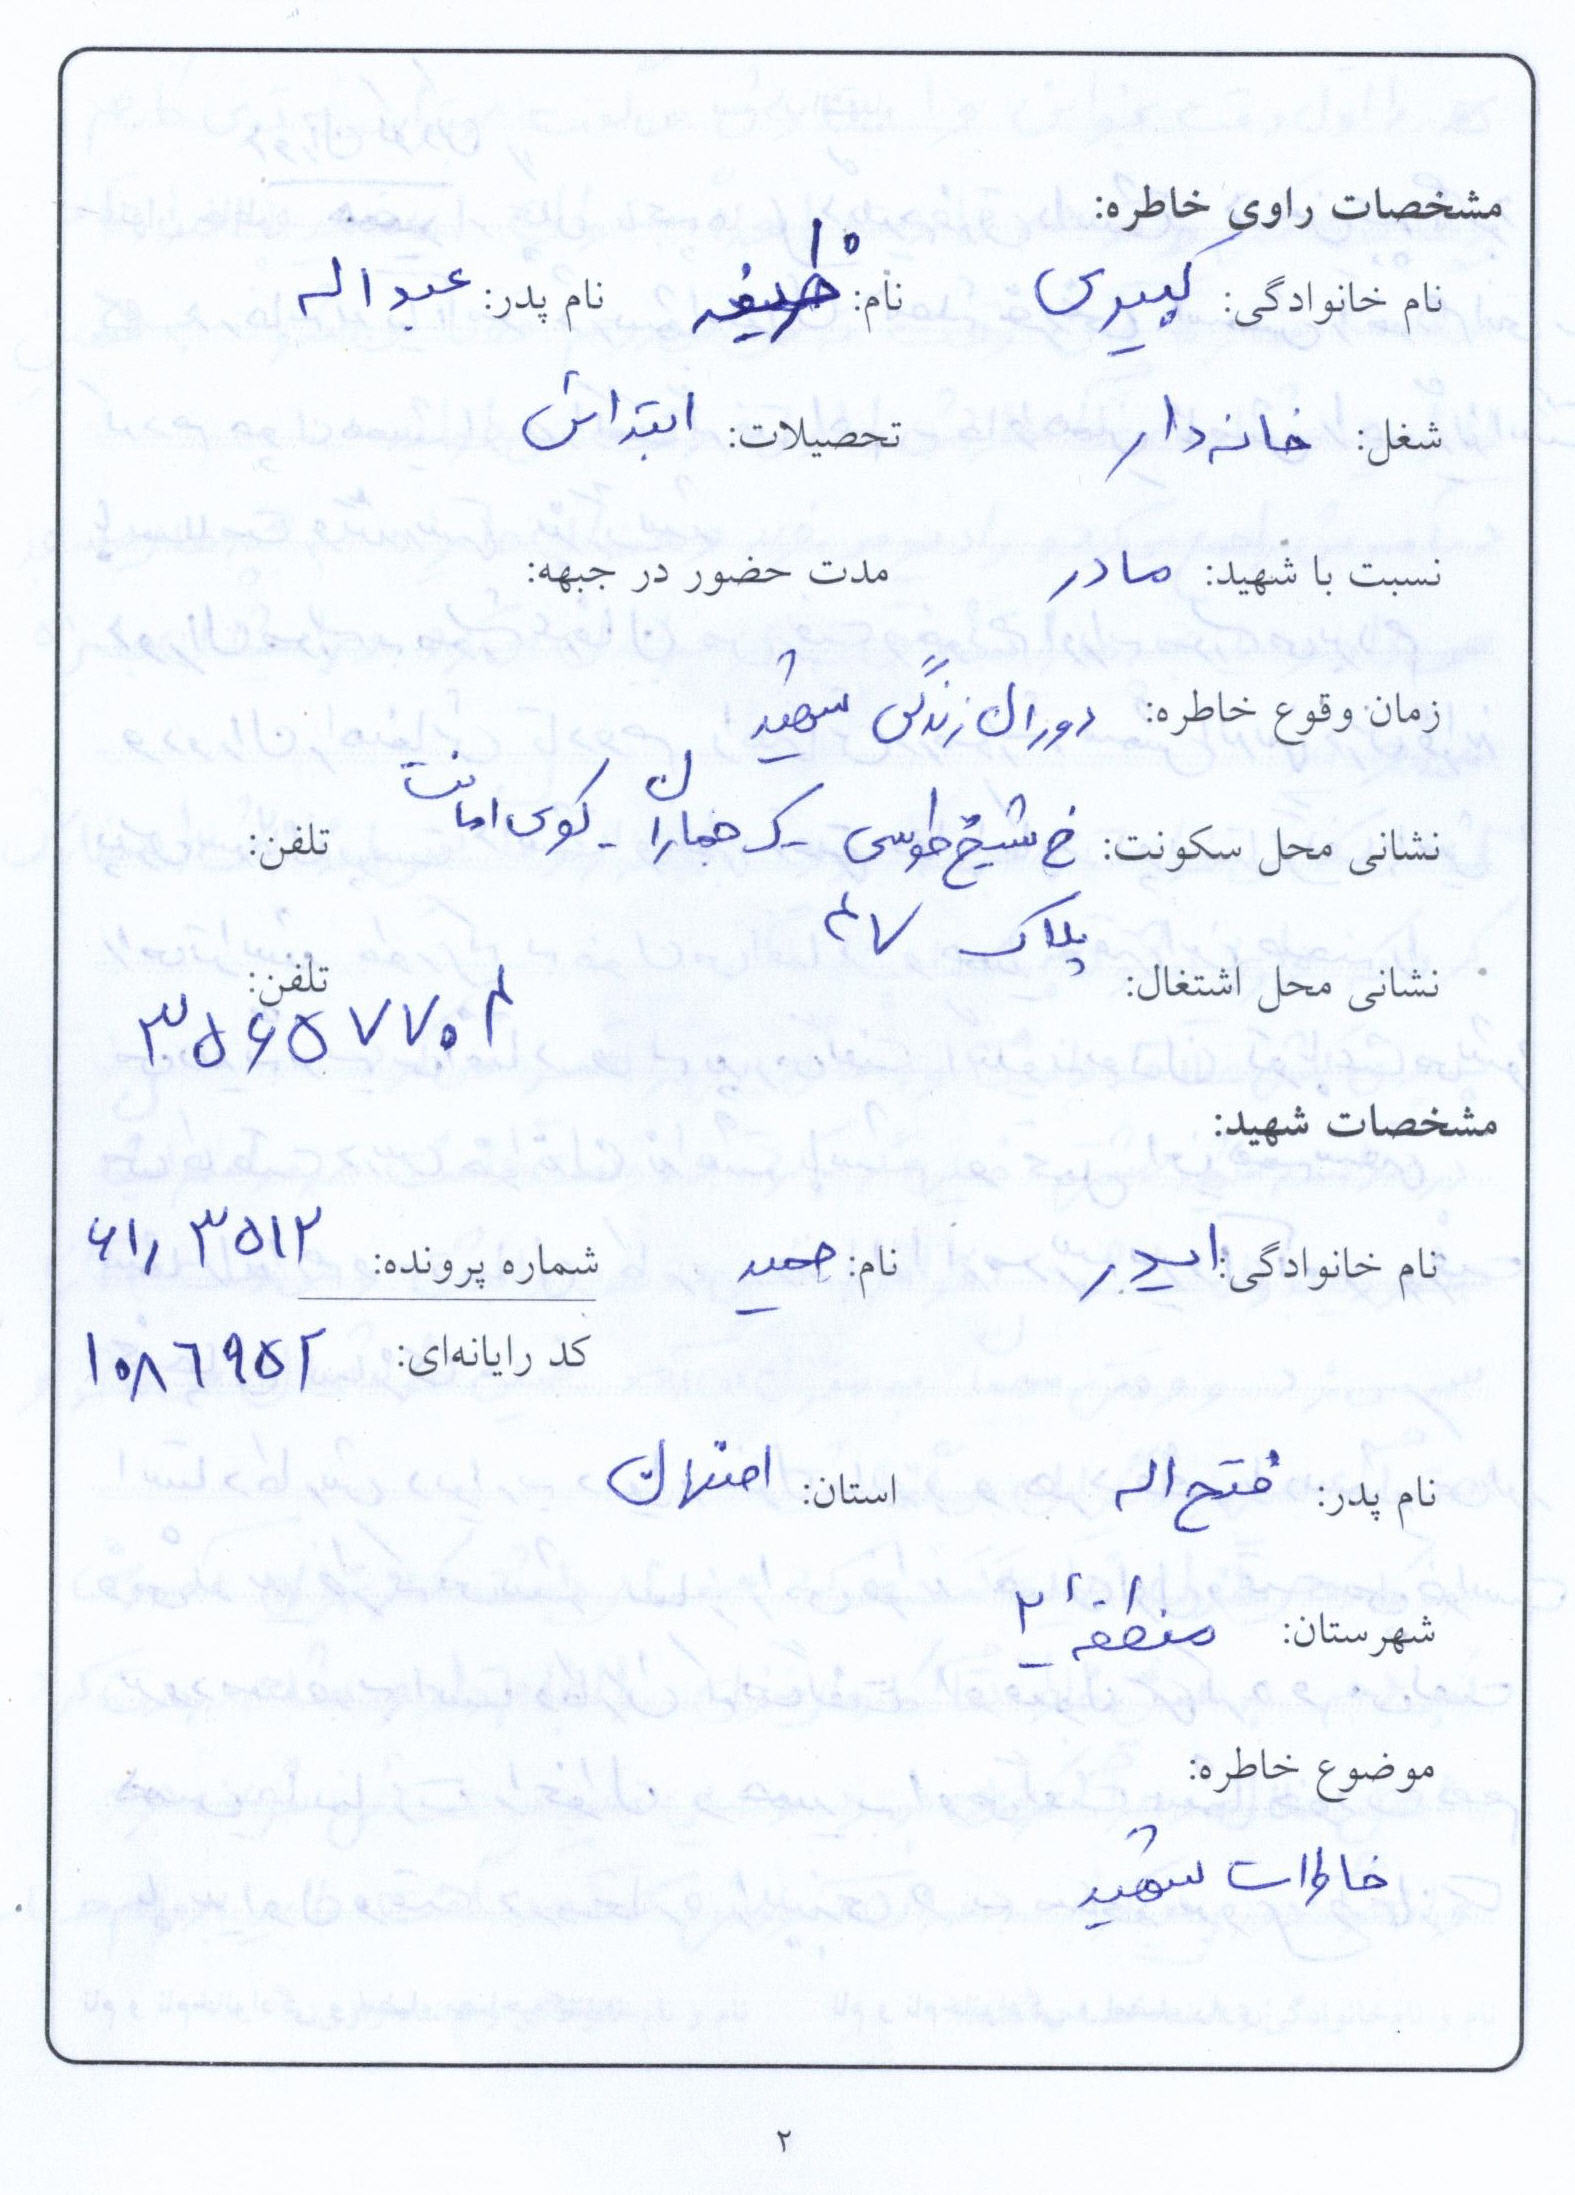 مشخصات راوی خاطره:
نام خانوادگی: کبیری نام: ظریفه نام پدر: عبداله
شغل: خانه دار تحصیلات: ابتدائی
نسبت با شهید: مادر مدت حضور در جبهه:
زمان وقوع خاطره: دوران زندگی شهید
نشانی محل سکونت: خ شیخ طوسی - ک - کوی امانت تلفن:
پلاک ۴۷
نشانی محل اشتغال: تلفن:
۳۵۶۵۷۷۰۴
مشخصات شهید:
نام خانوادگی: نام: حمید شماره پرونده: ۶۱٫۳۵۱۲
کد رایانه‌ای: ۱۰۸۶۹۵۲
نام پدر: فتح اله استان: اصفهان
شهرستان: منطقه ۲
موضوع خاطره:
خاطرات شهید
۲